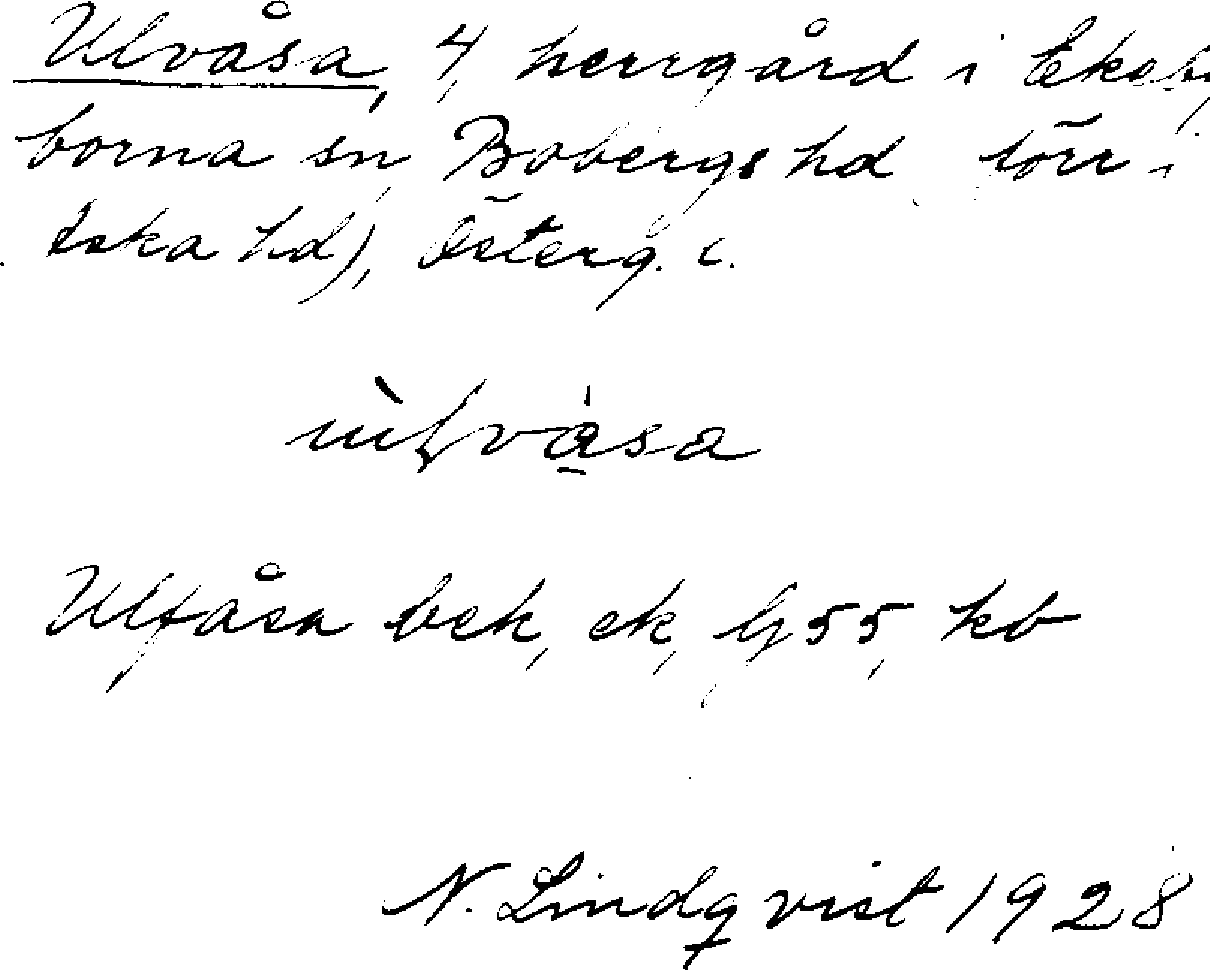 Ulvåsa, 4, herrgård i Ekeby
borna sn, Bobergs hd förr i
Aska hd), Österg. l.
ùlvása
Ulfåsa bek, ek, G 55, kb
N. Lindqvist 1928